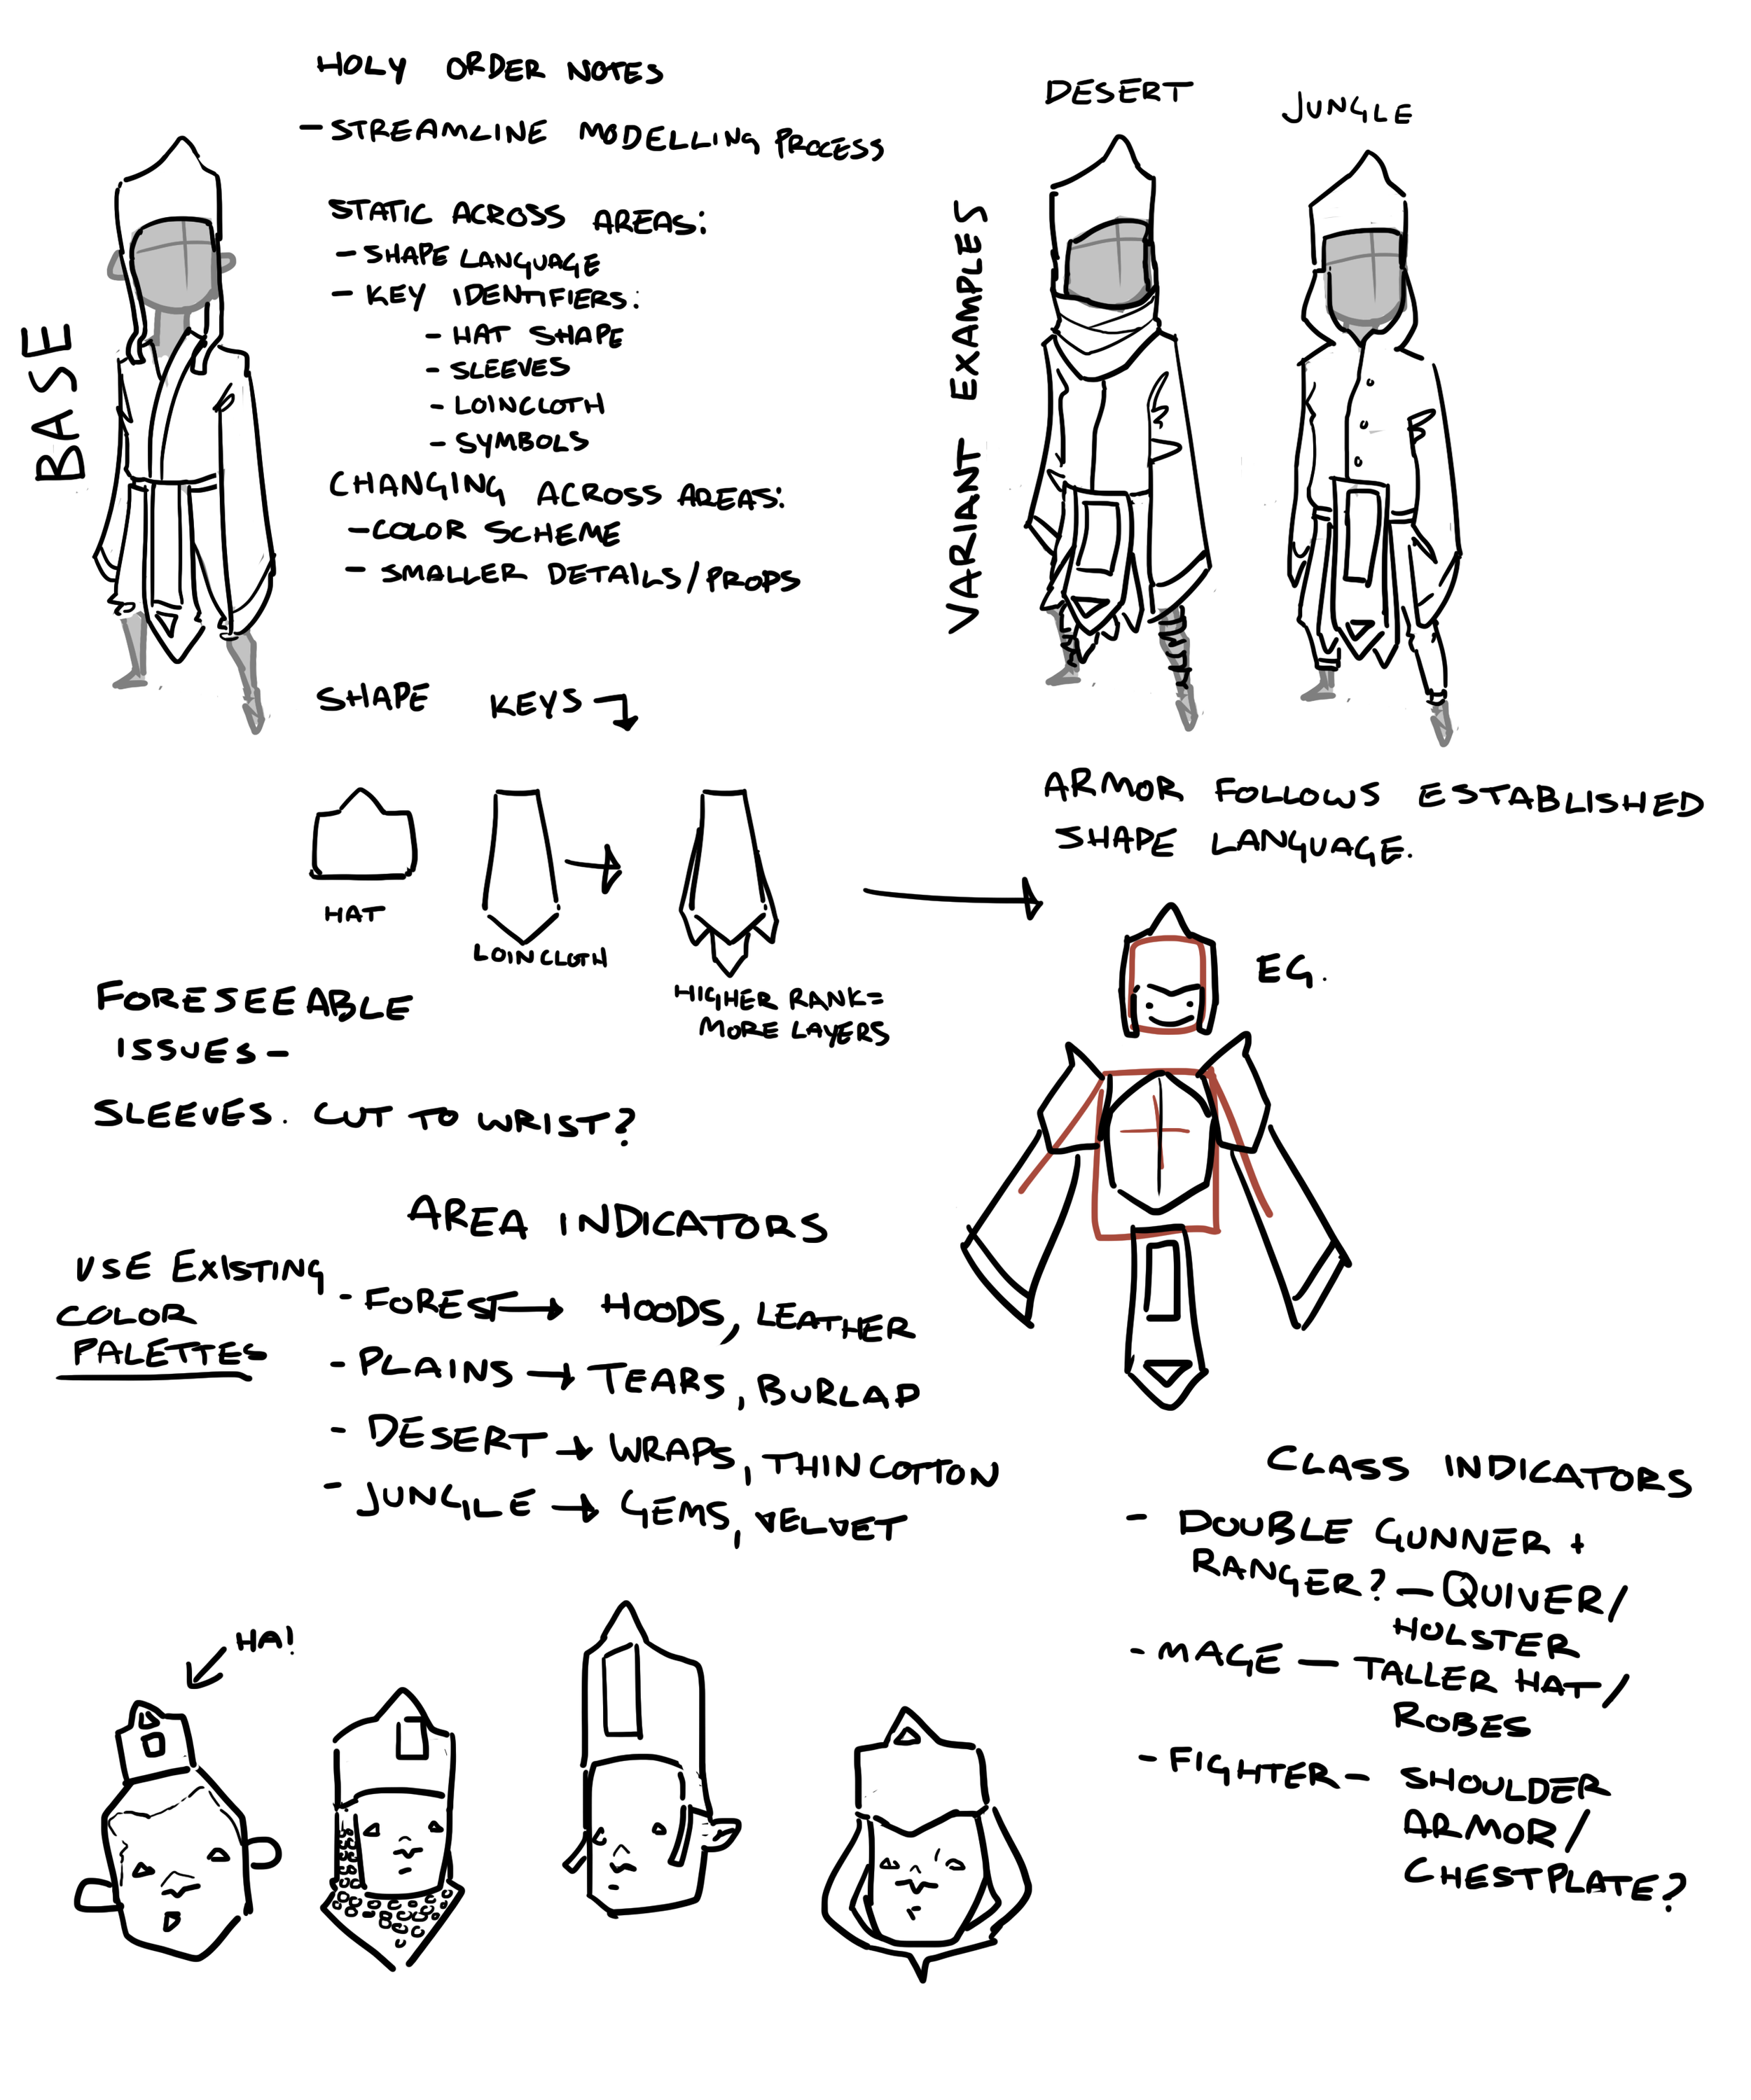 HOLY ORDER NOTES
- STREAMLINE MODELLING PROCESS
STATIC ACROSS AREAS:
- SHAPE LANGUAGE
- KEY IDENTIFIERS:
- HAT SHAPE
- SLEEVES
- LOINCLOTH
- SYMBOLS
CHANGING ACROSS AREAS:
- COLOR SCHEME
- SMALLER DETAILS/PROPS
BASE
VARIANT EXAMPLES
DESERT
JUNGLE
SHAPE KEYS
HAT
LOINCLOTH
HIGHER RANK =
MORE LAYERS
ARMOR FOLLOWS ESTABLISHED
SHAPE LANGUAGE.
EG.
FORESEEABLE
ISSUES -
SLEEVES. CUT TO WRIST?
AREA INDICATORS
USE EXISTING
COLOR
PALETTES
- FOREST → HOODS, LEATHER
- PLAINS → TEARS, BURLAP
- DESERT → WRAPS, THIN COTTON
- JUNGLE → GEMS, VELVET
CLASS INDICATORS
- DOUBLE GUNNER +
RANGER? - QUIVER/
HOLSTER
- MAGE - TALLER HAT/
ROBES
- FIGHTER - SHOULDER
ARMOR/
CHESTPLATE?
HA!